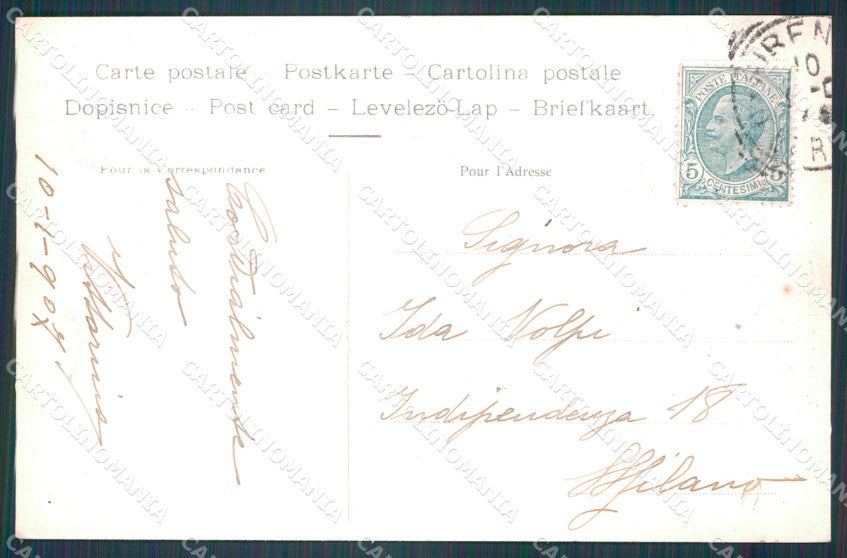 Carte postale - Postkarte - Cartolina postale
Dopisnice - Post card - Levelező-Lap - Briefkaart
Pour la Correspondance
Pour l'Adresse
POSTE ITALIANE
5 5
CENTESIMI
10
Cordialmente
saluto
Signora
Ida Volpi
Indipendenza 18
Milano
CARTOLINOMANIA